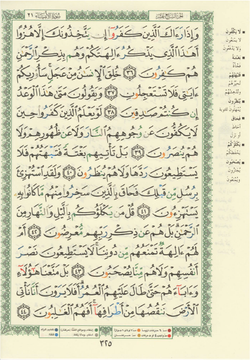 وَإِذَا رَءَاكَ ٱلَّذِينَ كَفَرُوٓا۟ إِن يَتَّخِذُونَكَ إِلَّا هُزُوًا
أَهَـٰذَا ٱلَّذِى يَذْكُرُ ءَالِهَتَكُمْ وَهُم بِذِكْرِ ٱلرَّحْمَـٰنِ
هُمْ كَـٰفِرُونَ ٣٦ خُلِقَ ٱلْإِنسَـٰنُ مِنْ عَجَلٍ سَأُو۟رِيكُمْ
ءَايَـٰتِى فَلَا تَسْتَعْجِلُونِ ٣٧ وَيَقُولُونَ مَتَىٰ هَـٰذَا ٱلْوَعْدُ
إِن كُنتُمْ صَـٰدِقِينَ ٣٨ لَوْ يَعْلَمُ ٱلَّذِينَ كَفَرُوا۟ حِينَ
لَا يَكُفُّونَ عَن وُجُوهِهِمُ ٱلنَّارَ وَلَا عَن ظُهُورِهِمْ وَلَا
هُمْ يُنصَرُونَ ٣٩ بَلْ تَأْتِيهِم بَغْتَةً فَتَبْهَتُهُمْ فَلَا
يَسْتَطِيعُونَ رَدَّهَا وَلَا هُمْ يُنظَرُونَ ٤٠ وَلَقَدِ ٱسْتُهْزِئَ
بِرُسُلٍ مِّن قَبْلِكَ فَحَاقَ بِٱلَّذِينَ سَخِرُوا۟ مِنْهُم مَّا كَانُوا۟ بِهِۦ
يَسْتَهْزِءُونَ ٤١ قُلْ مَن يَكْلَؤُكُم بِٱلَّيْلِ وَٱلنَّهَارِ مِنَ
ٱلرَّحْمَـٰنِ بَلْ هُمْ عَن ذِكْرِ رَبِّهِم مُّعْرِضُونَ ٤٢ أَمْ
لَهُمْ ءَالِهَةٌ تَمْنَعُهُم مِّن دُونِنَا لَا يَسْتَطِيعُونَ نَصْرَ
أَنفُسِهِمْ وَلَا هُم مِّنَّا يُصْحَبُونَ ٤٣ بَلْ مَتَّعْنَا هَـٰٓؤُلَآءِ
وَءَابَآءَهُمْ حَتَّىٰ طَالَ عَلَيْهِمُ ٱلْعُمُرُ أَفَلَا يَرَوْنَ أَنَّا نَأْتِى
ٱلْأَرْضَ نَنقُصُهَا مِنْ أَطْرَافِهَآ أَفَهُمُ ٱلْغَـٰلِبُونَ ٤٤
٣٢٥